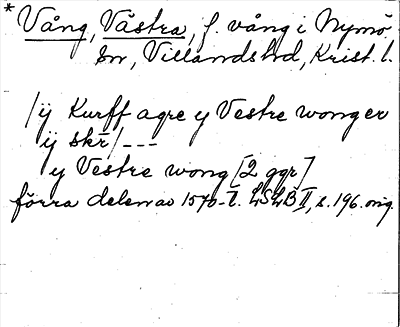 * Vång, Västra, f. vång i Nymö
sn, Villands hd, Krist. l.
/ij Kurff agre y Vestre wong er
ij skr/---
y Vestre wong [2 ggr]
förra delen av 1570-t. LSLB II, s. 196. orig.